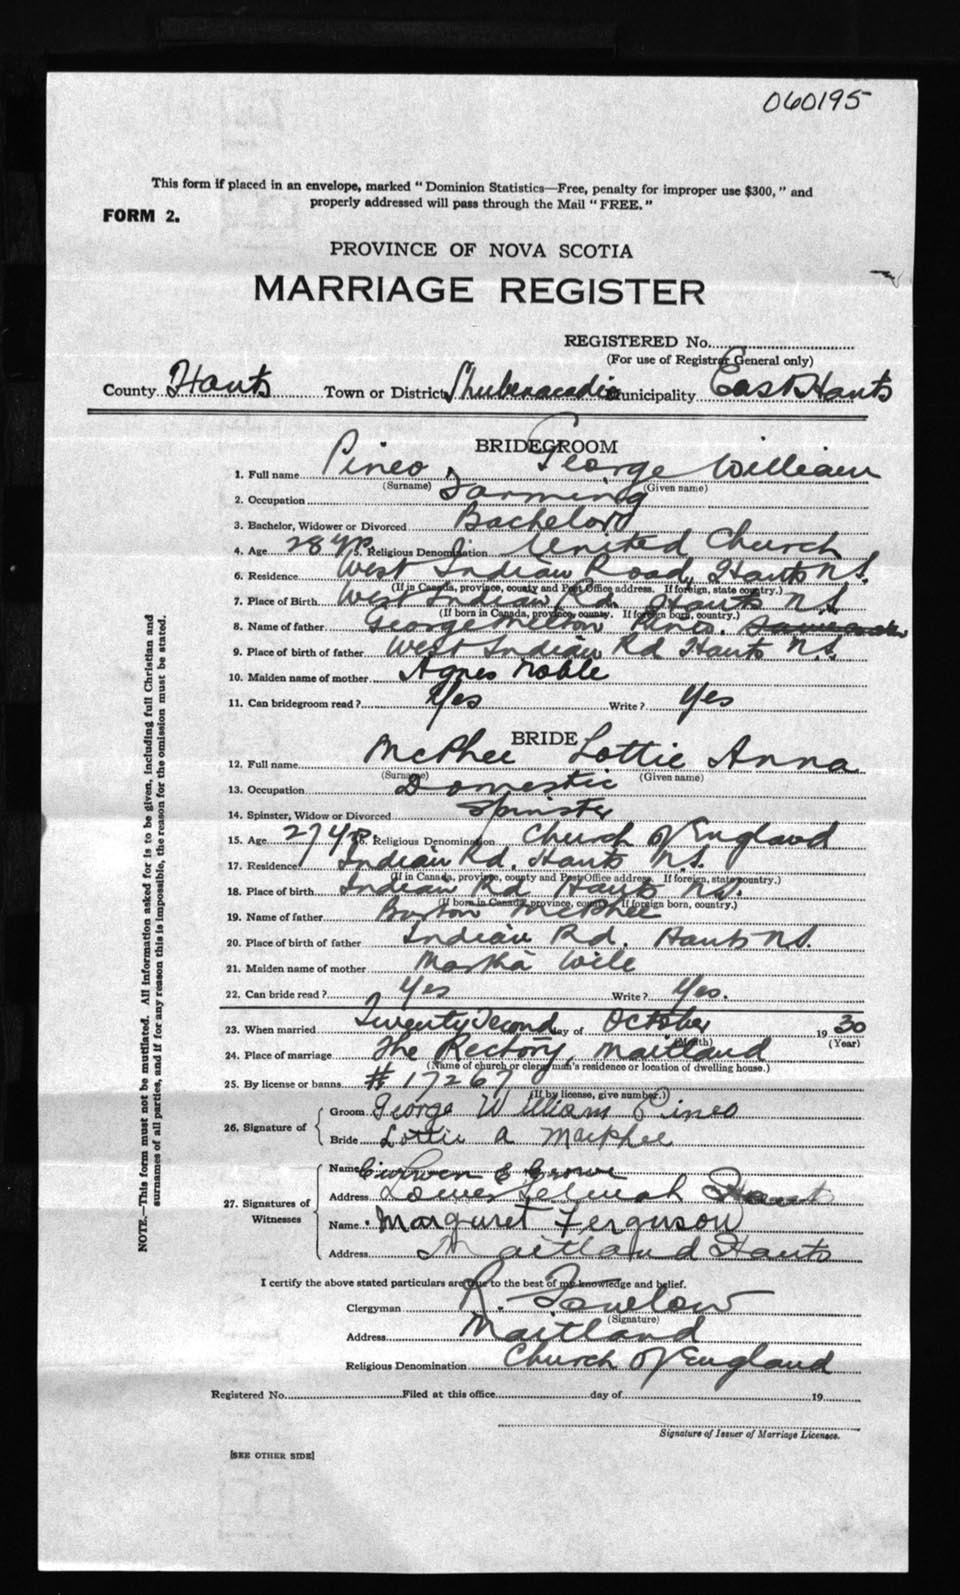 060195
This form if placed in an envelope, marked "Dominion Statistics—Free, penalty for improper use $300," and
properly addressed will pass through the Mail "FREE."
FORM 2.
PROVINCE OF NOVA SCOTIA
MARRIAGE REGISTER
REGISTERED No.
(For use of Registrar General only)
County Hants Town or District Shubenacadie Municipality East Hants
BRIDEGROOM
1. Full name Pineo, George William
(Surname) (Given name)
2. Occupation Farming
3. Bachelor, Widower or Divorced Bachelor
4. Age 28 yrs 5. Religious Denomination United Church
6. Residence West Indian Road, Hants N.S.
(If in Canada, province, county and Post Office address. If foreign, state country.)
7. Place of Birth West Indian Rd. Hants N.S.
(If born in Canada, province, county. If foreign born, country.)
8. Name of father George Pineo.
9. Place of birth of father West Indian Rd Hants N.S.
10. Maiden name of mother Agnes Noble
11. Can bridegroom read? Yes Write? Yes
BRIDE
12. Full name McPhee Lottie Anna
(Surname) (Given name)
13. Occupation Domestic
14. Spinster, Widow or Divorced Spinster
15. Age 27 yrs 16. Religious Denomination Church of England
17. Residence Indian Rd. Hants N.S.
(If in Canada, province, county and Post Office address. If foreign, state country.)
18. Place of birth Indian Rd Hants N.S.
(If born in Canada, province, county. If foreign born, country.)
19. Name of father Burton McPhee
20. Place of birth of father Indian Rd. Hants N.S.
21. Maiden name of mother Wile
22. Can bride read? Yes Write? Yes.
23. When married Twenty Second day of October 1930
(Month) (Year)
24. Place of marriage The Rectory, Maitland
(Name of church or clergyman's residence or location of dwelling house.)
25. By license or banns # 17267
(If by license, give number.)
26. Signature of
Groom George William Pineo
Bride Lottie A McPhee
27. Signatures of Witnesses
Name E
Address Lower Selmah Hants
Name Margaret Ferguson
Address Maitland Hants
I certify the above stated particulars are true to the best of my knowledge and belief.
Clergyman R.
(Signature)
Address Maitland
Religious Denomination Church of England
Registered No. Filed at this office day of 19
Signature of Issuer of Marriage Licenses.
[SEE OTHER SIDE]
NOTE.—This form must not be mutilated. All information asked for is to be given, including full Christian and
surnames of all parties, and if for any reason this is impossible, the reason for the omission must be stated.